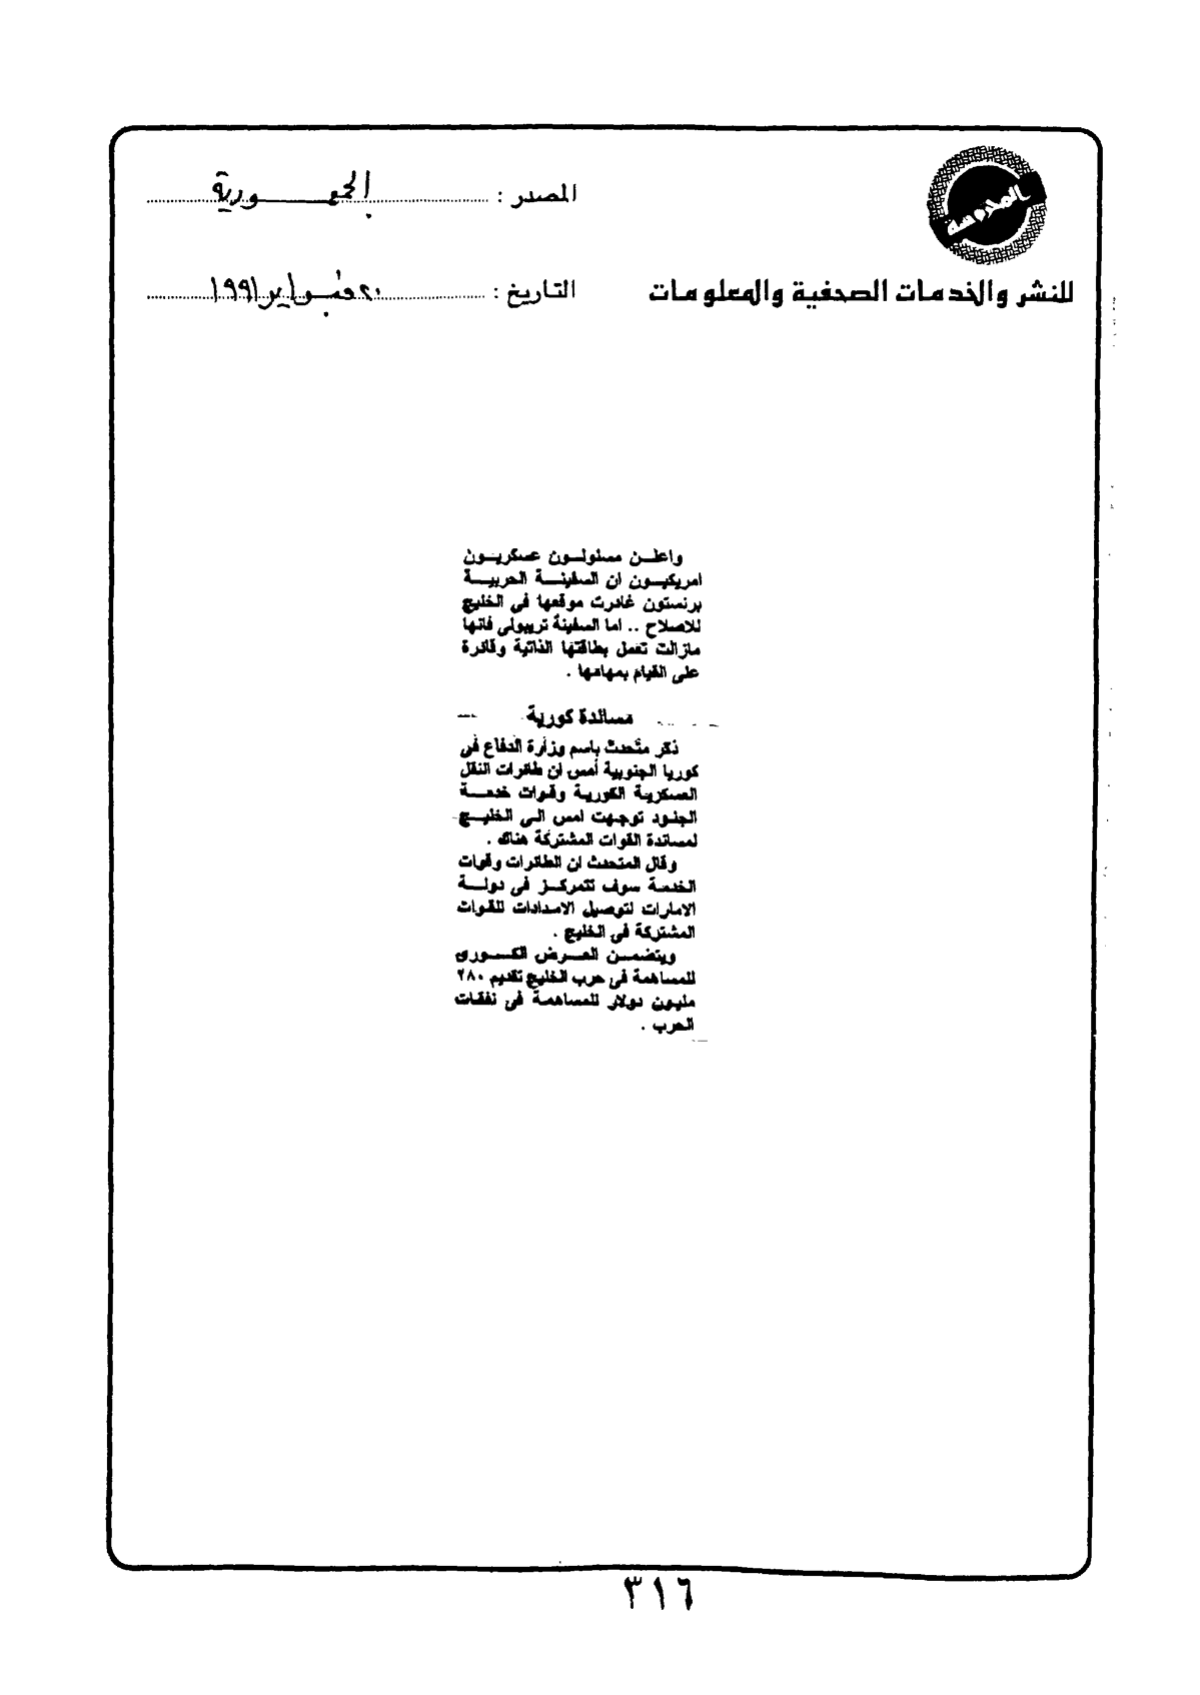 المحروسة
للنشر والخدمات الصحفية والمعلومات
المصدر : الجمهورية
التاريخ : ٢٠ فبراير ١٩٩١
واعلن مسئولون عسكريون
امريكيون ان السفينة الحربية
برنستون غادرت موقعها فى الخليج
للاصلاح .. اما السفينة تريبولى فانها
مازالت تعمل بطاقتها الذاتية وقادرة
على القيام بمهامها .
مساندة كورية
ذكر متحدث باسم وزارة الدفاع فى
كوريا الجنوبية أمس ان طائرات النقل
العسكرية الكورية وقوات خدمة
الجنود توجهت امس الى الخليج
لمساندة القوات المشتركة هناك .
وقال المتحدث ان الطائرات وقوات
الخدمة سوف تتمركز فى دولة
الامارات لتوصيل الامدادات للقوات
المشتركة فى الخليج .
ويتضمن العرض الكورى
للمساهمة فى حرب الخليج تقديم ٢٨٠
مليون دولار للمساهمة فى نفقات
الحرب .
٣١٦